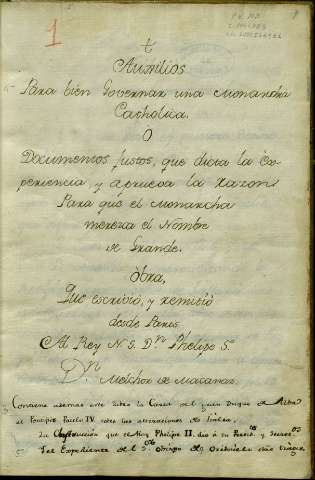 1
+
Auxilios
Para bien Governar una Monarchia
Catholica.
O
Documentos justos, que dicta la Ex-
periencia y aprueva la Razon
Para que el Monarcha
merezca el Nombre
de Grande.
Obra,
Que escrivió, y remitió
desde Paris
Al Rey N. S. Dn. Phelipe 5º
Dn.
Melchor de Macanaz.
Contiene ademas otro sobre la Carta del gran Duque de Alba
al Pontifice Paulo IV sobre las
La Instruccion que el Rey Phelipe II. dio a su
5 El Expediente del Obispo de